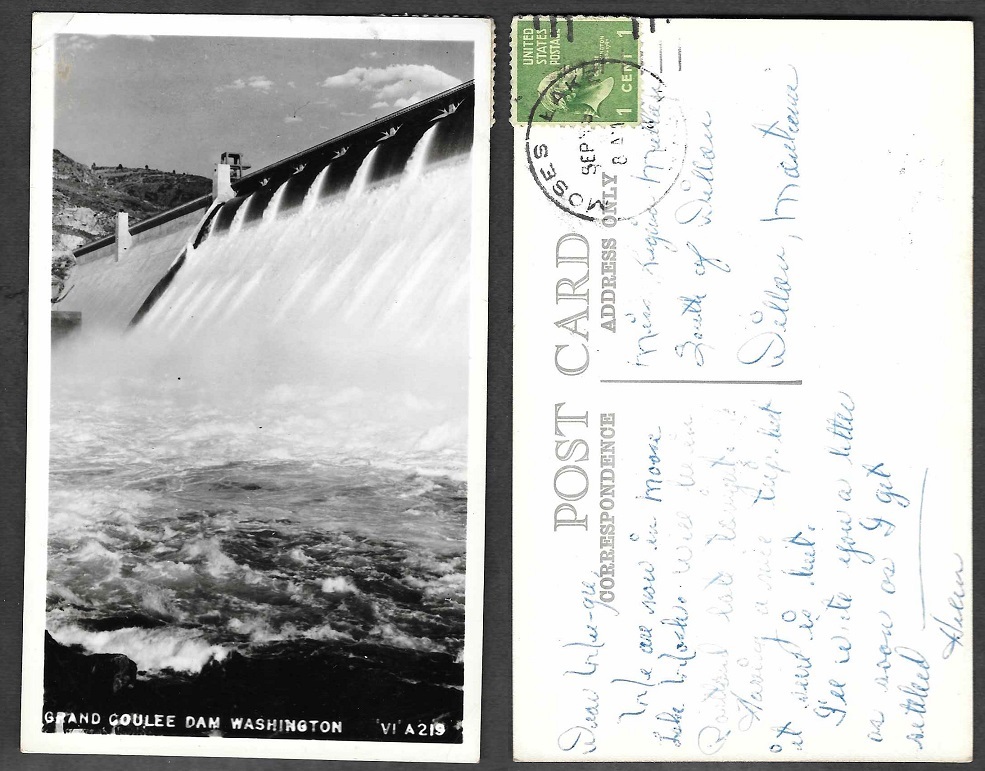 GRAND COULEE DAM WASHINGTON VI A219
UNITED
STATES
POSTAGE
1 CENT 1
MOSES LAKE
SEP
8 AM
POST CARD
CORRESPONDENCE
ADDRESS ONLY
Dear
We are now in Moose
Lake Wash. Will be in
last tonight.
Having a nice trip, but
it sure is hot.
I'll write you a letter
as soon as I get
settled
Helen
Miss
South of Dillon
Dillon, Montana